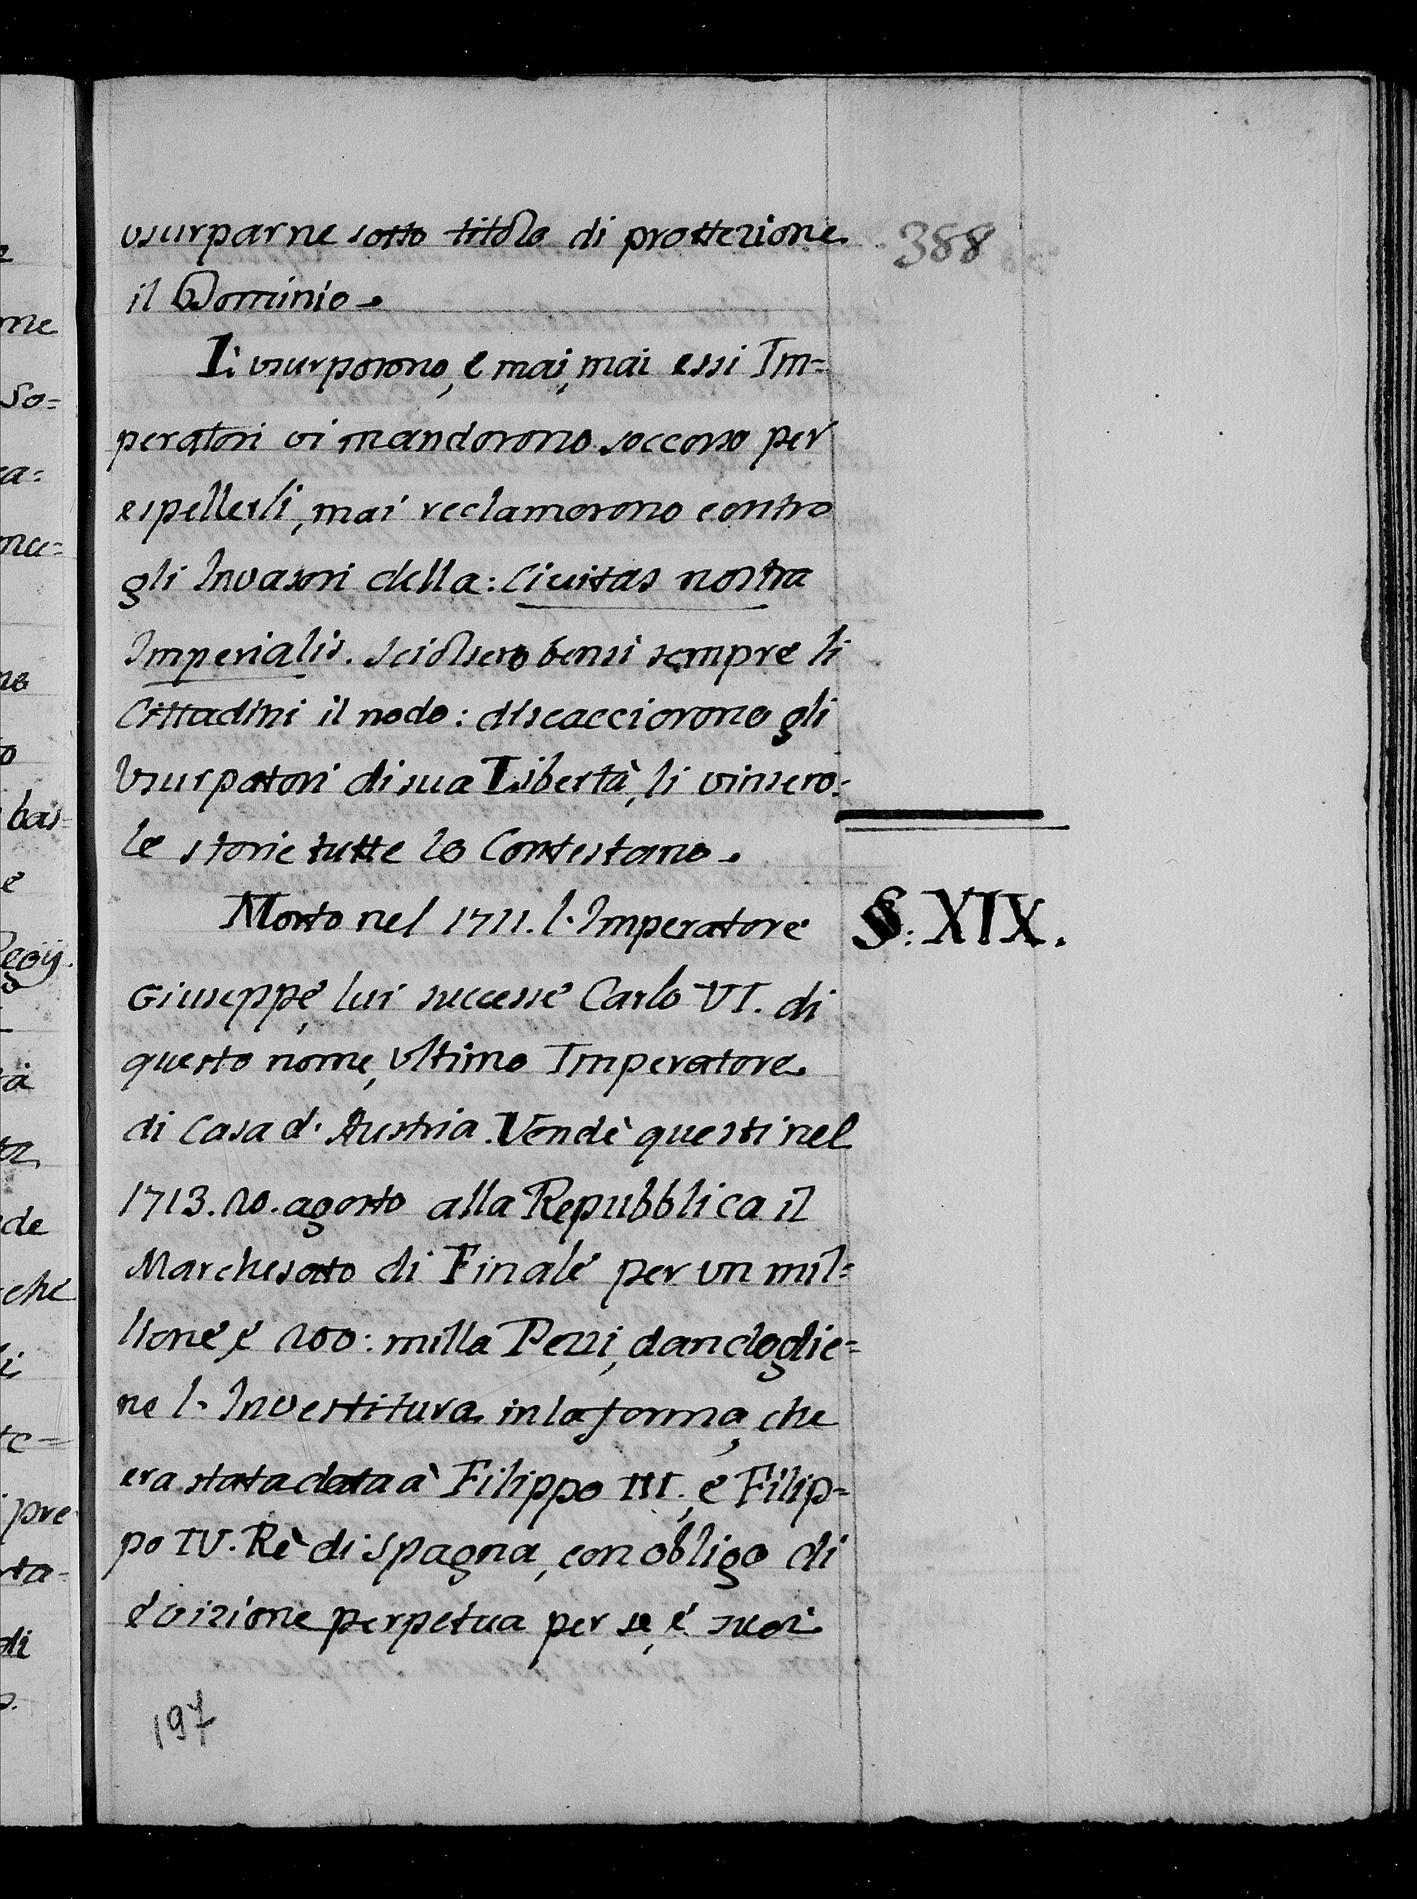 usurparne sotto titolo di prottezione
388
il Dominio.
L' usurporono, e mai, mai essi Im=
peratori vi mandorono soccorso per
espellerli, mai reclamorono contro
gli Invasori della: Civitas nostra
Imperialis. Sciolsero bensi sempre li
Cittadini il nodo: discacciorono gli
Usurpatori di sua Libertà, li vinsero:
le storie tutte lo Contestano.
Morto nel 1711. l' Imperatore
§: XIX.
Giuseppe, lui successe Carlo VI. di
questo nome, ultimo Imperatore
di Casa d' Austria. Vendè questi nel
1713. 20. agosto alla Repubblica il
Marchesato di Finale per un mil=
lione, e 200: milla Pezzi, dandoglie=
ne l' Investitura in la forma, che
era stata data à Filippo III, e Filip=
po IV. Rè di Spagna, con obligo di
evizione perpetua per se, e suoi
197